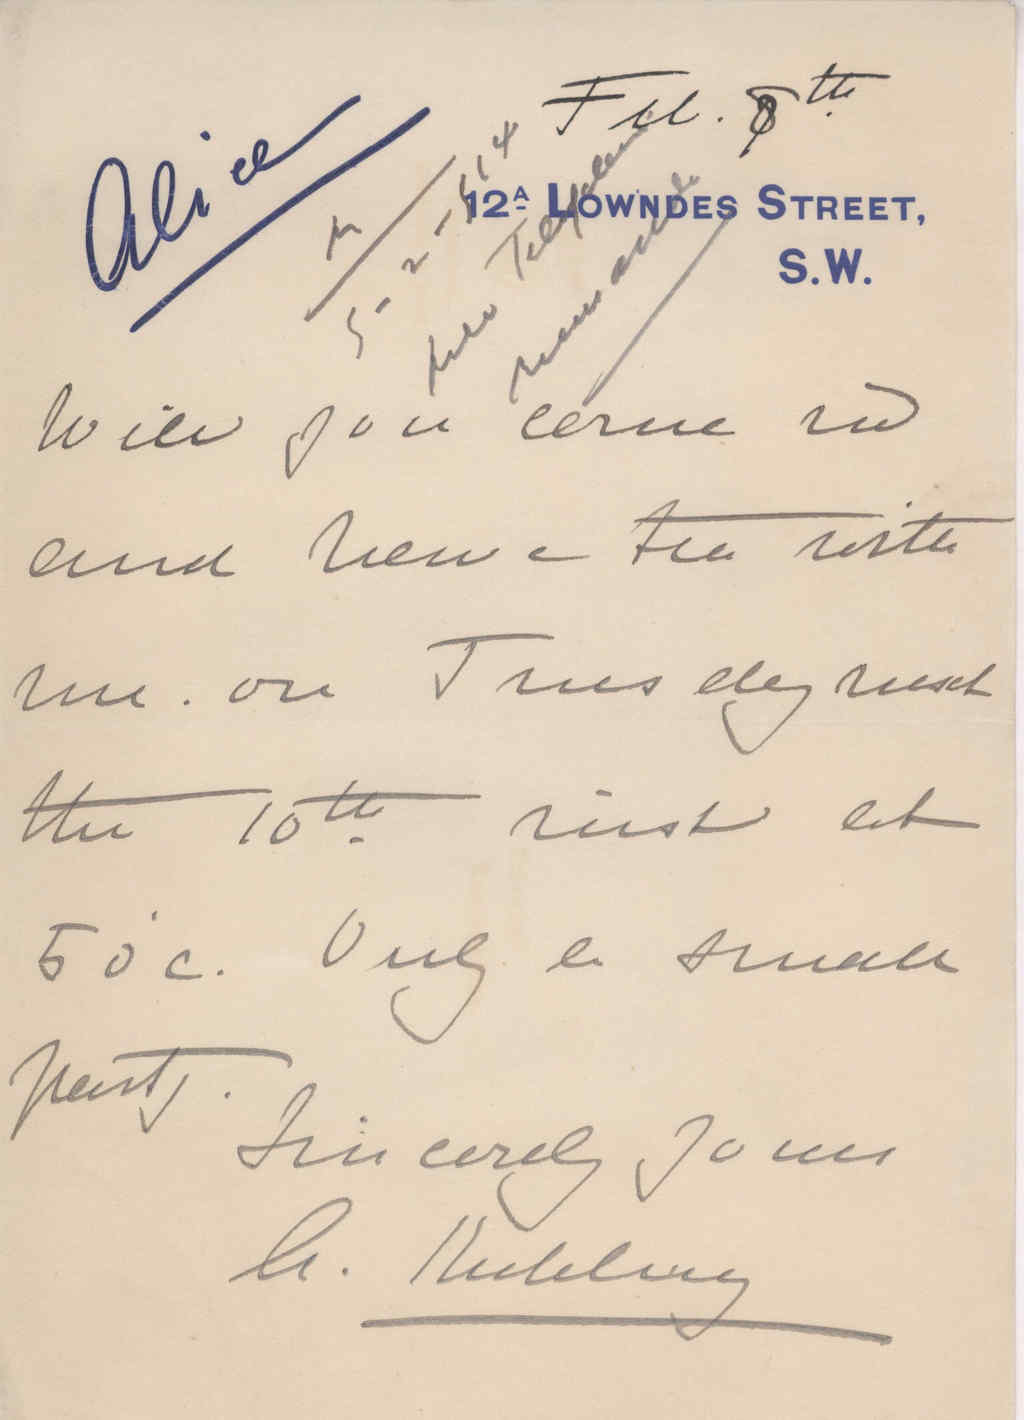 Feb. 8th
Alice
5-2-14
12A LOWNDES STREET,
S.W.
Will you come in
and have tea with
me. on Tuesday next
the 10th inst at
5 o'c. Only a small
party.
Sincerely yours
A.